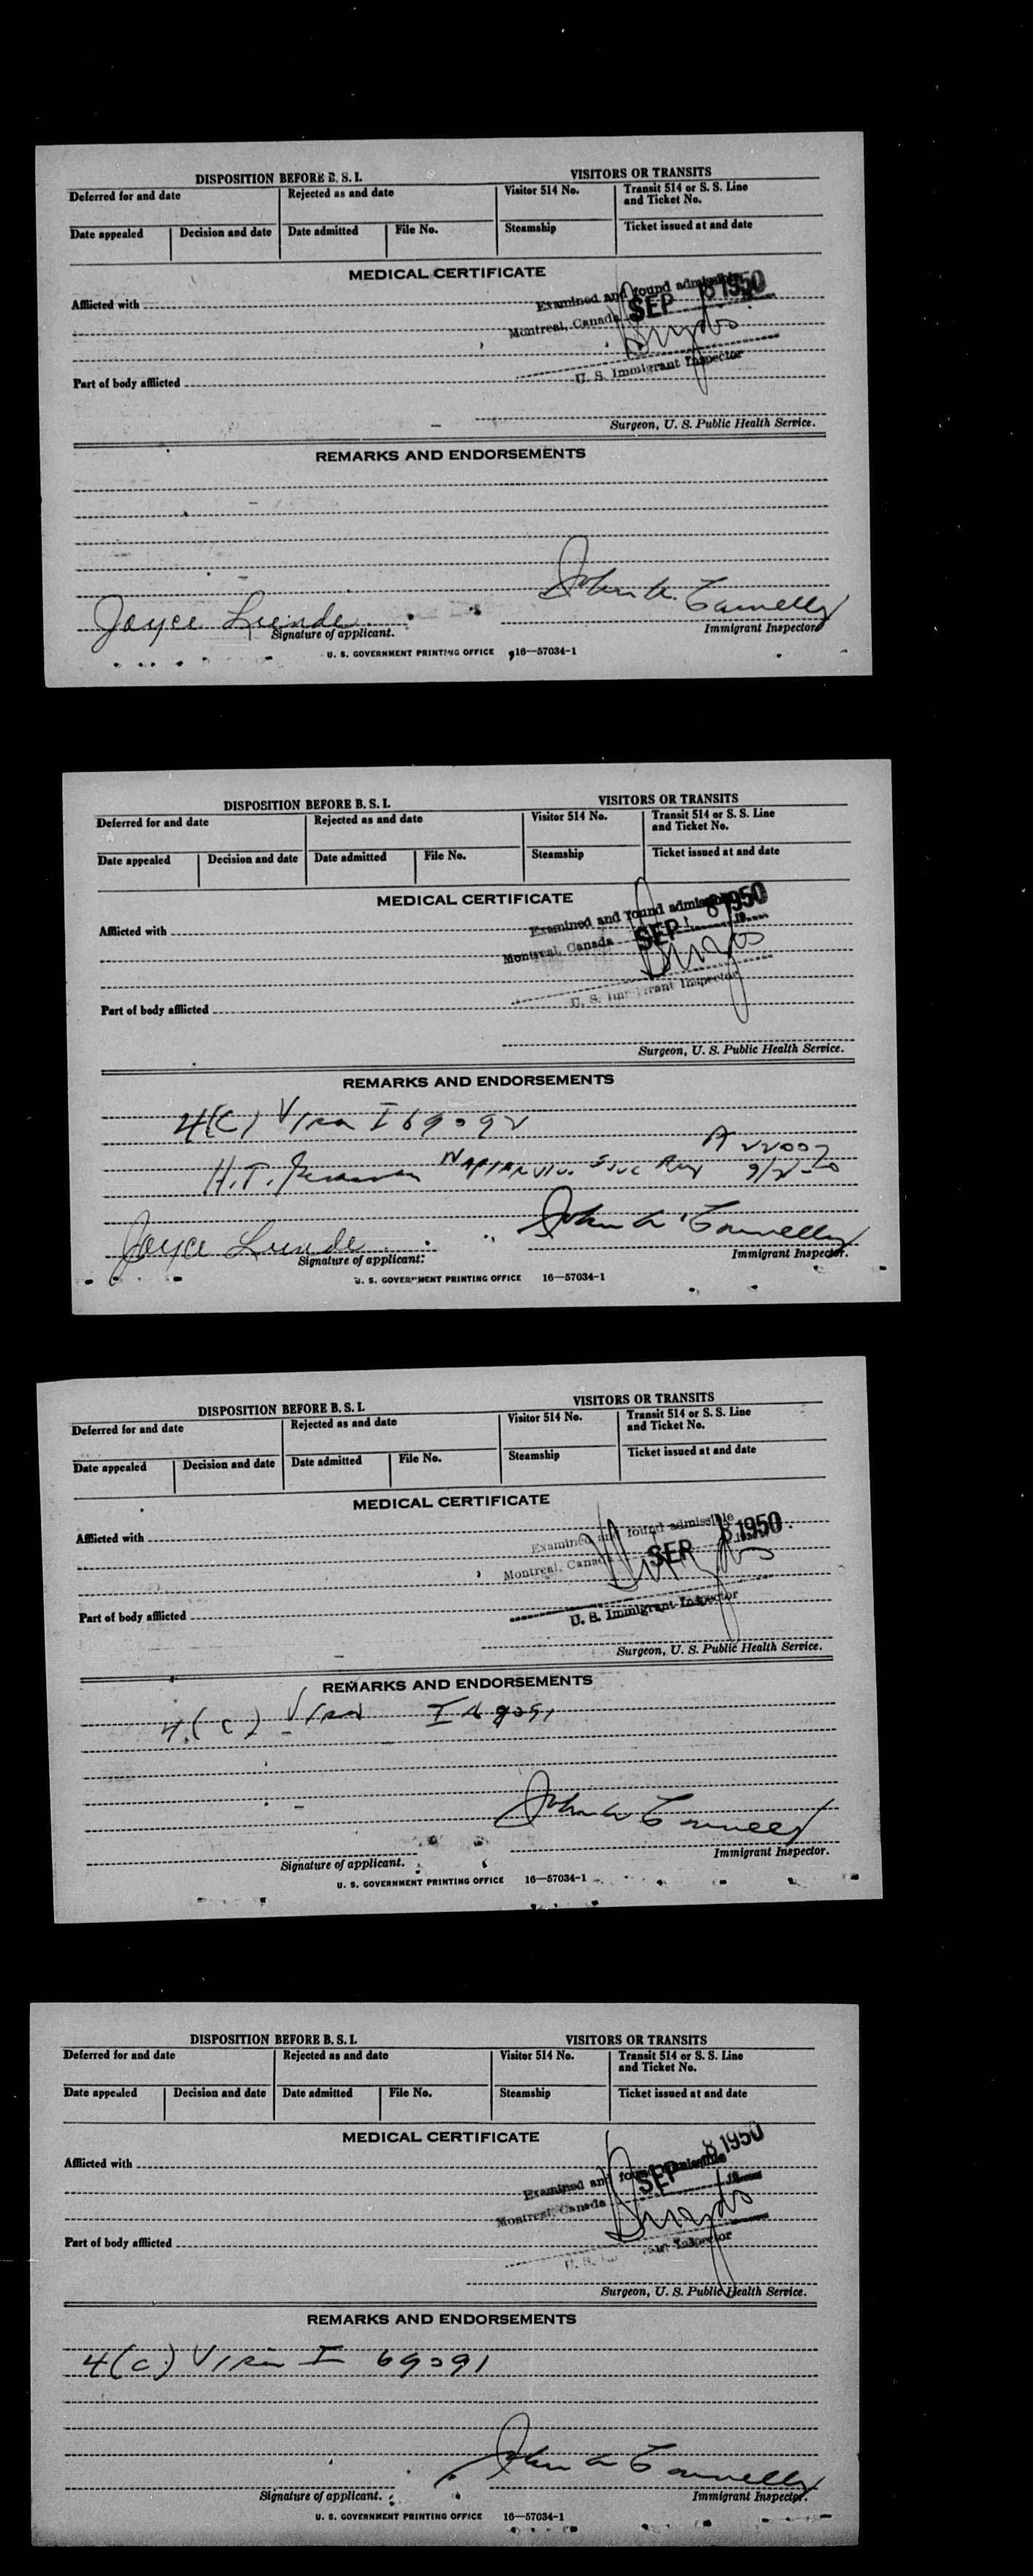 DISPOSITION BEFORE B. S. I. VISITORS OR TRANSITS
Deferred for and date Rejected as and date Visitor 514 No. Transit 514 or S. S. Line and Ticket No.
Date appealed Decision and date Date admitted File No. Steamship Ticket issued at and date
MEDICAL CERTIFICATE
Afflicted with
Examined and found admissible
Montreal, Canada SEP 8 1950
U. S. Immigrant Inspector
Part of body afflicted
Surgeon, U. S. Public Health Service.
REMARKS AND ENDORSEMENTS
Joyce Lunde
Signature of applicant. Immigrant Inspector
U. S. GOVERNMENT PRINTING OFFICE 16—57034-1
DISPOSITION BEFORE B. S. I. VISITORS OR TRANSITS
Deferred for and date Rejected as and date Visitor 514 No. Transit 514 or S. S. Line and Ticket No.
Date appealed Decision and date Date admitted File No. Steamship Ticket issued at and date
MEDICAL CERTIFICATE
Afflicted with
Examined and found admissible
Montreal, Canada SEP 8 1950
19
U. S. Immigrant Inspector
Part of body afflicted
Surgeon, U. S. Public Health Service.
REMARKS AND ENDORSEMENTS
4(C) Visa I 69092
H. T.
Joyce Lunde John
Signature of applicant. Immigrant Inspector.
U. S. GOVERNMENT PRINTING OFFICE 16—57034-1
DISPOSITION BEFORE B. S. I. VISITORS OR TRANSITS
Deferred for and date Rejected as and date Visitor 514 No. Transit 514 or S. S. Line and Ticket No.
Date appealed Decision and date Date admitted File No. Steamship Ticket issued at and date
MEDICAL CERTIFICATE
Afflicted with
Examined and found admissible
Montreal, Canada SEP 8 1950
U. S. Immigrant Inspector
Part of body afflicted
Surgeon, U. S. Public Health Service.
REMARKS AND ENDORSEMENTS
4(c) Visa I 69091
John
Signature of applicant. Immigrant Inspector.
U. S. GOVERNMENT PRINTING OFFICE 16—57034-1
DISPOSITION BEFORE B. S. I. VISITORS OR TRANSITS
Deferred for and date Rejected as and date Visitor 514 No. Transit 514 or S. S. Line and Ticket No.
Date appealed Decision and date Date admitted File No. Steamship Ticket issued at and date
MEDICAL CERTIFICATE
Afflicted with
Examined and found admissible
Montreal, Canada SEP 8 1950
19
U. S. Inspector
Part of body afflicted
Surgeon, U. S. Public Health Service.
REMARKS AND ENDORSEMENTS
4(c) Visa I 69091
John
Signature of applicant. Immigrant Inspector.
U. S. GOVERNMENT PRINTING OFFICE 16—57034-1